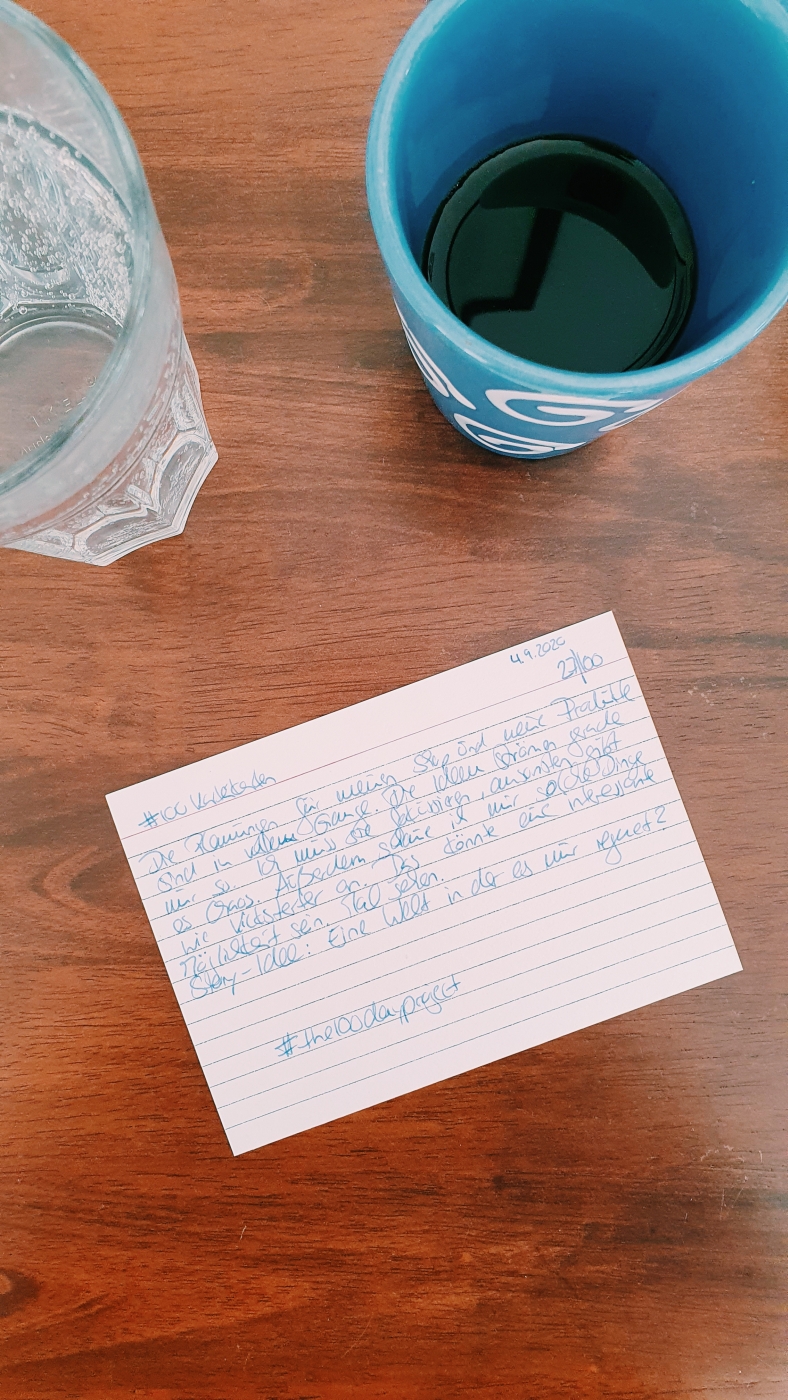 4.9.2020
27/100
#100Karteikarten
Die Planungen für meinen Shop und meine Produkte
sind in vollem Gange. Die Ideen strömen grade
nur so. Ich muss sie fokussieren, ansonsten gibt
es Chaos. Außerdem schaue ich mir solche Dinge
wie Kickstarter an. Das könnte eine interessante
Möglichkeit sein. Mal sehen.
Story-Idee: Eine Welt in der es nur regnet?
#the100dayproject